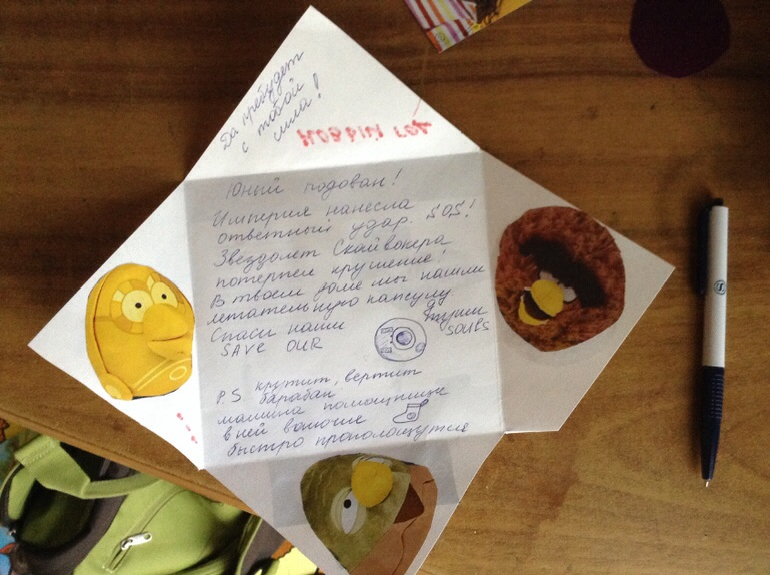 Да пребудет
с тобой
сила!
Юный падован!
Империя нанесла
ответный удар. SOS!
Звездолет Скайвокера
потерпел крушение!
В твоем доме мы нашли
летательную капсулу
Спаси наши души
SAVE OUR SOULS
P.S крутит, вертит
барабан
машина помощница
в ней вонючие
быстро прополощутся